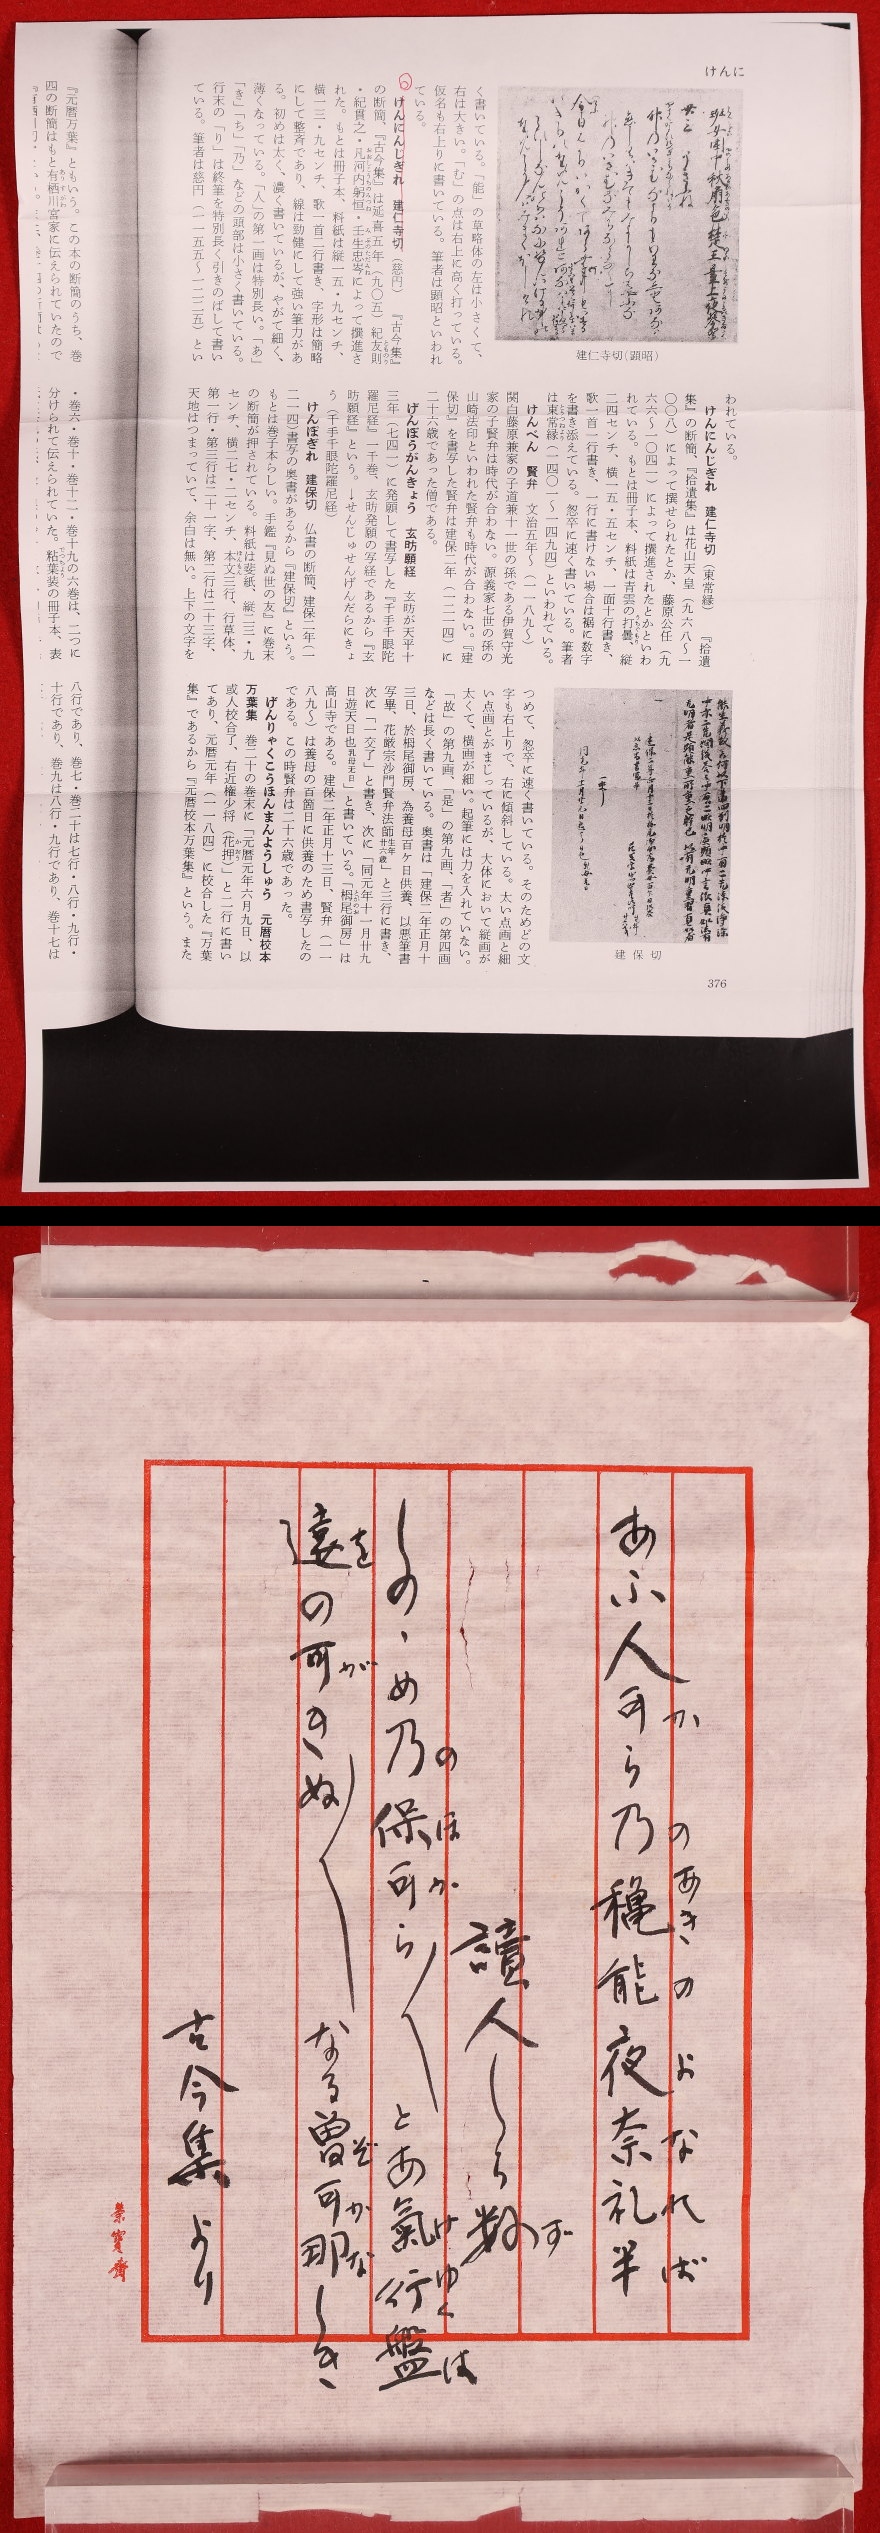 けんに
建仁寺切(顕昭)
く書いている。「能」の草略体の左は小さくて、
右は大きい。「む」の点は右上に高く打っている。
仮名も右上りに書いている。筆者は顕昭といわれ
ている。
けんにんじぎれ 建仁寺切(慈円) 『古今集』
の断簡、『古今集』は延喜五年(九〇五)紀友則
・紀貫之・凡河内躬恒・壬生忠岑によって撰進さ
れた。もとは冊子本、料紙は縦一五・九センチ、
横一三・九センチ、歌一首二行書き、字形は簡略
にして整斉であり、線は勁健にして強い筆力があ
る。初めは太く、濃く書いているが、やがて細く、
薄くなっている。「人」の第一画は特別長い。「あ」
「き」「ち」「乃」などの頭部は小さく書いている。
行末の「り」は終筆を特別長く引きのばして書い
ている。筆者は慈円(一一五五〜一二二五)とい
われている。
けんにんじぎれ 建仁寺切(東常縁) 『拾遺
集』の断簡、『拾遺集』は花山天皇(九六八〜一
〇〇八)によって撰せられたとか、藤原公任(九
六六〜一〇四一)によって撰進されたとかといわ
れている。もとは冊子本、料紙は青雲の打曇、縦
二四センチ、横一五・五センチ、一面十行書き、
歌一首一行書き、一行に書けない場合は裾に数字
を書き添えている。怱卒に速く書いている。筆者
は東常縁(一四〇一〜一四九四)といわれている。
けんべん 賢弁 文治五年〜(一一八九〜)
関白藤原兼家の子道兼十一世の孫である伊賀守光
家の子賢弁は時代が合わない。源義家七世の孫の
山崎法印といわれた賢弁も時代が合わない。『建
保切』を書写した賢弁は建保二年(一二一四)に
二十六歳であった僧である。
げんぼうがんきょう 玄昉願経 玄昉が天平十
三年(七四一)に発願して書写した『千手千眼陀
羅尼経』一千巻、玄昉発願の写経であるから『玄
昉願経』という。→せんじゅせんげんだらにきょ
う(千手千眼陀羅尼経)
けんぽぎれ 建保切 仏書の断簡、建保二年(一
二一四)書写の奥書があるから『建保切』という。
もとは巻子本らしい。手鑑『見ぬ世の友』に巻末
の断簡が押されている。料紙は斐紙、縦三三・九
センチ、横二七・二センチ、本文三行、行草体、
第一行・第三行は二十一字、第二行は二十三字、
天地はつまっていて、余白は無い。上下の文字を
建保切
つめて、怱卒に速く書いている。そのためどの文
字も右上りで、右に傾斜している。太い点画と細
い点画とがまじっているが、大体において縦画が
太くて、横画が細い。起筆には力を入れていない。
「故」の第九画、「是」の第九画、「者」の第四画
などは長く書いている。奥書は「建保二年正月十
三日、於栂尾御房、為養母百ケ日供養、以悪筆書
写畢、花厳宗沙門賢弁法師生年廿六歳」と三行に書き、
次に「一交了」と書き、次に「同元年十一月廿九
日遊天日也乳母忌日」と書いている。「栂尾御房」は
高山寺である。建保二年正月十三日、賢弁(一一
八九〜)は養母の百箇日に供養のため書写したの
である。この時賢弁は二十六歳であった。
げんりゃくこうほんまんようしゅう 元暦校本
万葉集 巻二十の巻末に「元暦元年六月九日、以
或人校合了、右近権少将(花押)」と二行に書い
てあり、元暦元年(一一八四)に校合した『万葉
集』であるから『元暦校本万葉集』という。また
376
『元暦万葉』ともいう。この本の断簡のうち、巻
四の断簡はもと有栖川宮家に伝えられていたので
・巻六・巻十・巻十二・巻十九の六巻は、二つに
分けられて伝えられていた。粘葉装の冊子本、表
八行であり、巻七・巻二十は七行・八行・九行・
十行であり、巻九は八行・九行であり、巻十七は
あふ人可ら乃穐能夜奈礼半
か のあきのよなれば
讀人しら数
ず
しのゝめ乃保可ら〱とあ氣行盤
のほか けゆくは
遠の可きぬ〱なる曽可那しき
を が ぞかな
古今集より
榮寳齋